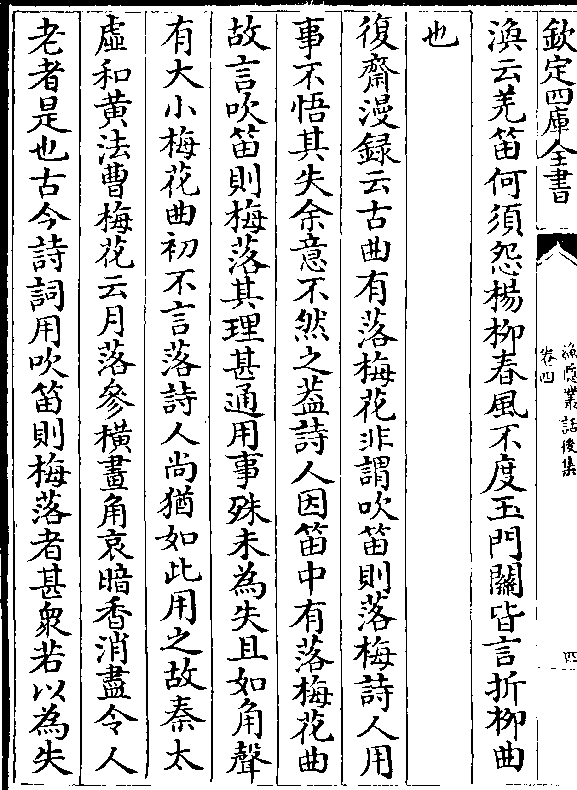 欽定四庫全書
漁隠叢話後集
卷四
四
渙云羌笛何須怨楊柳春風不度玉門關皆言折柳曲
也
復齋漫録云古曲有落梅花非謂吹笛則落梅詩人用
事不悟其失余意不然之葢詩人因笛中有落梅花曲
故言吹笛則梅落其理甚通用事殊未為失且如角聲
有大小梅花曲初不言落詩人尚猶如此用之故秦太
虛和黄法曹梅花云月落參横畫角哀暗香消盡令人
老者是也古今詩詞用吹笛則梅落者甚衆若以為失